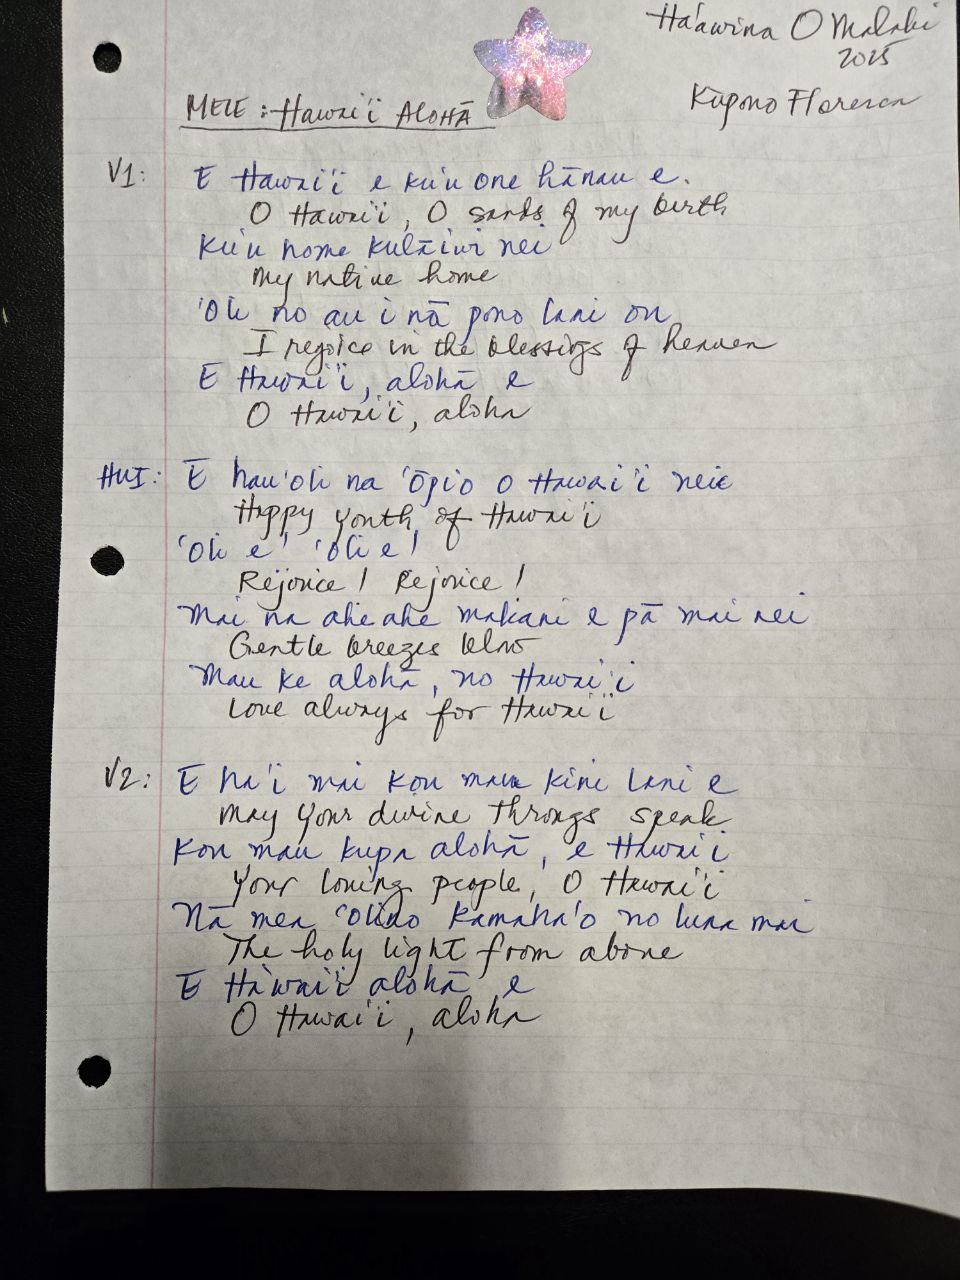 Ha'awina O Malaki
2025
Kūpono Floresca
MELE: Hawai'i ALOHĀ
V1: E Hawai'i e ku'u one hānau e.
O Hawai'i, O sands of my birth
Ku'u home kulāiwi nei
My native home
'Oli no au i nā pono lani ou
I rejoice in the blessings of heaven
E Hawai'i, alohā e
O Hawai'i, aloha
HUI: E hau'oli na 'Ōpio o Hawai'i nei
Happy youth of Hawai'i
'Oli e! 'Oli e!
Rejoice! Rejoice!
Mai na aheahe makani e pā mai nei
Gentle breezes blow
Mau ke alohā, no Hawai'i
Love always for Hawai'i
V2: E ha'i mai kou mau kini lani e
May your divine throngs speak
Kou mau kupa alohā, e Hawai'i
Your loving people, O Hawai'i
Nā mea 'olino kamaha'o no luna mai
The holy light from above
E Hawai'i alohā e
O Hawai'i, aloha